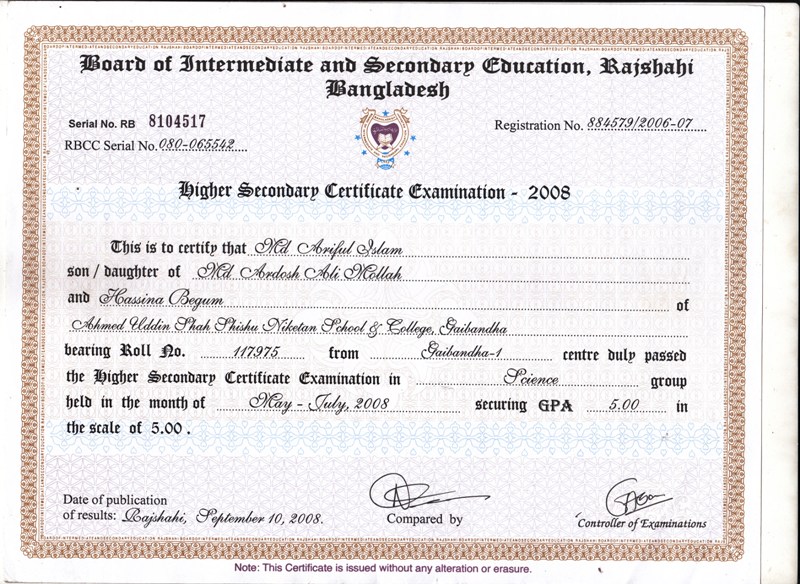 Board of Intermediate and Secondary Education, Rajshahi
Bangladesh
Serial No. RB 8104517
Registration No. 884579/2006-07
RBCC Serial No. 080-065542
Higher Secondary Certificate Examination - 2008
This is to certify that Md Ariful Islam
son / daughter of Md Ardosh Ali Mollah
and Hassina Begum of
Ahmed Uddin Shah Shishu Niketan School & College, Gaibandha
bearing Roll No. 117975 from Gaibandha-1 centre duly passed
the Higher Secondary Certificate Examination in Science group
held in the month of May - July, 2008 securing GPA 5.00 in
the scale of 5.00 .
Date of publication
of results: Rajshahi, September 10, 2008.
Compared by
Controller of Examinations
Note: This Certificate is issued without any alteration or erasure.